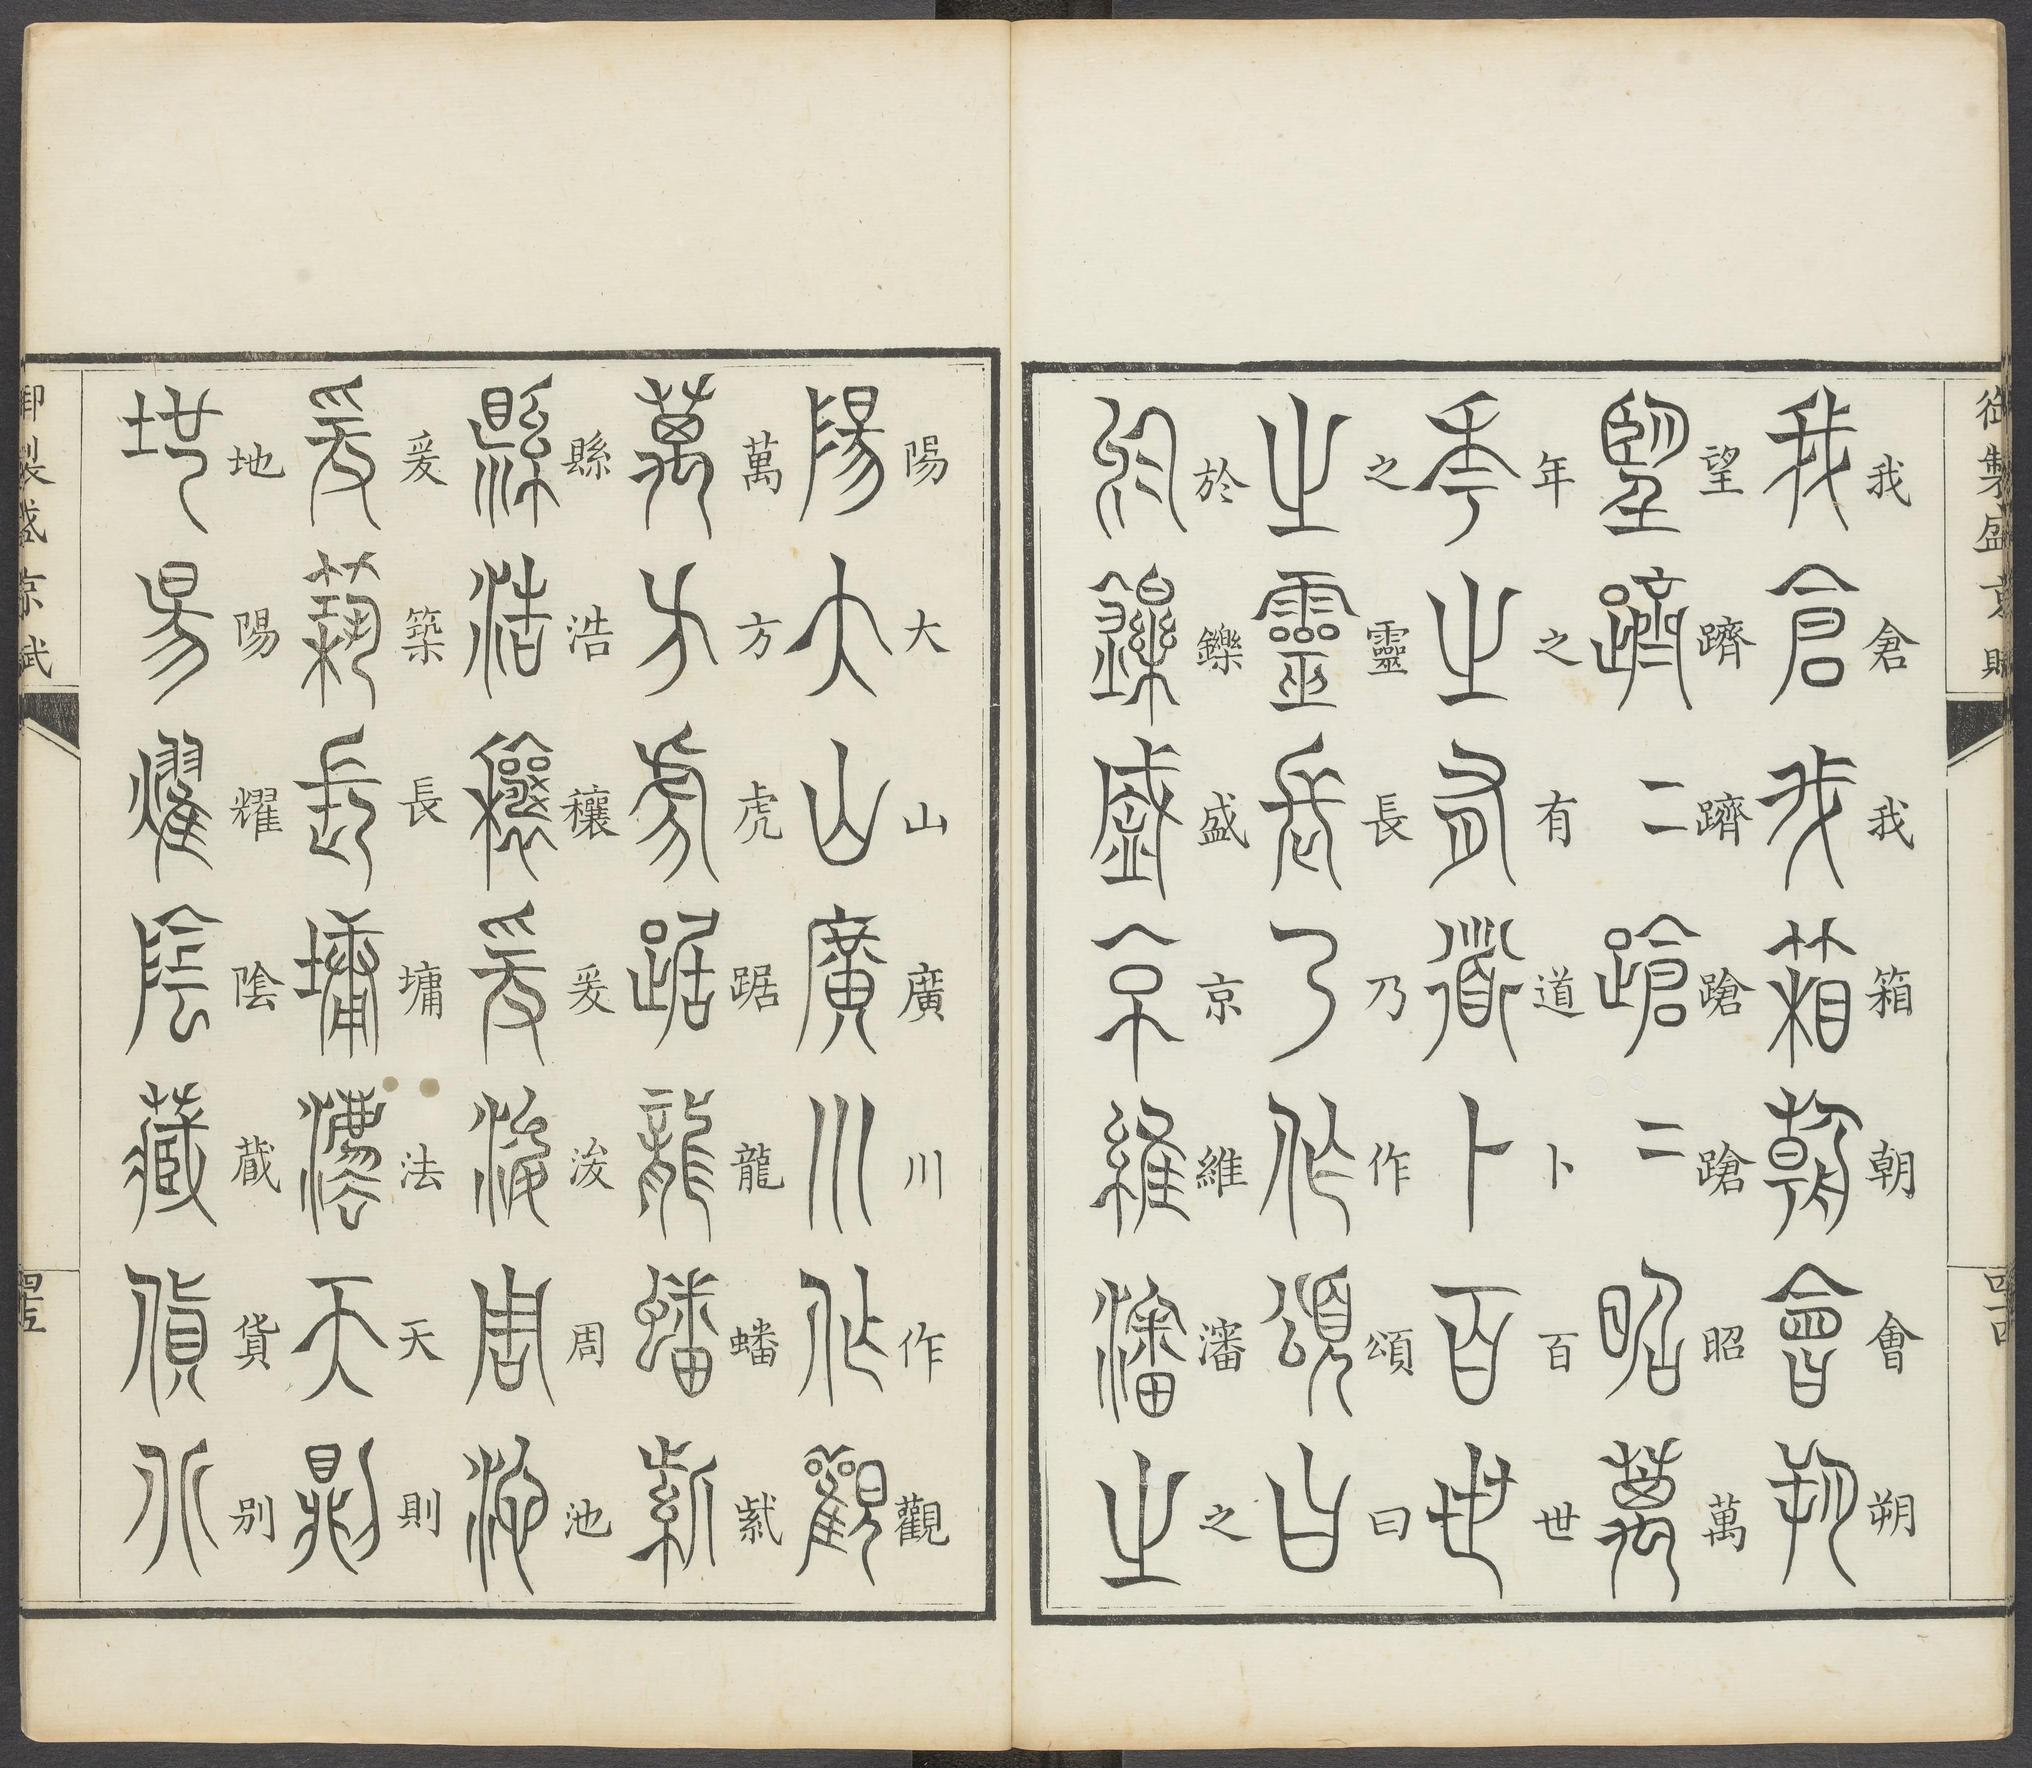 御製盛京賦
四十四
我倉我箱朝會朔
望躋躋蹌蹌昭萬
年之有道卜百世
之靈長乃作頌曰
於鑠盛京維瀋之
陽大山廣川作觀
萬方虎踞龍蟠紫
縣浩穰爰浚周池
爰築長墉法天則
地陽耀陰藏貨別
御製盛京賦